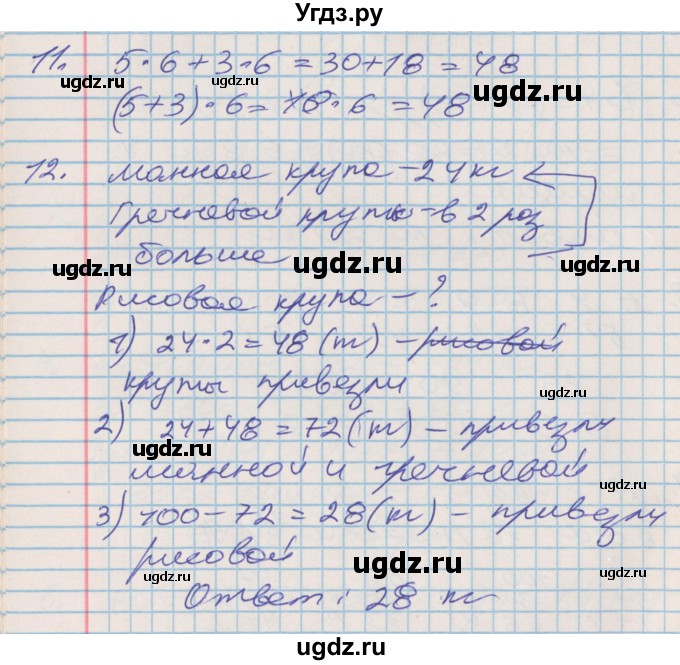 Угдз.ру
11. 5·6+3·6=30+18=48
(5+3)·6=10·6=48
12. манная крупа – 24 кг
Гречневой крупы – в 2 раз
больше
Рисовая крупа – ?
1) 24·2=48 (т) – рисовой
крупы привезли
2) 24+48=72 (т) – привезли
манной и гречневой
3) 100–72=28 (т) – привезли
рисовой
Ответ: 28 т
ugdz.ru
ugdz.ru
ugdz.ru
ugdz.ru
ugdz.ru
ugdz.ru
ugdz.ru
ugdz.ru
ugdz.ru
ugdz.ru
ugdz.ru
ugdz.ru
ugdz.ru
ugdz.ru